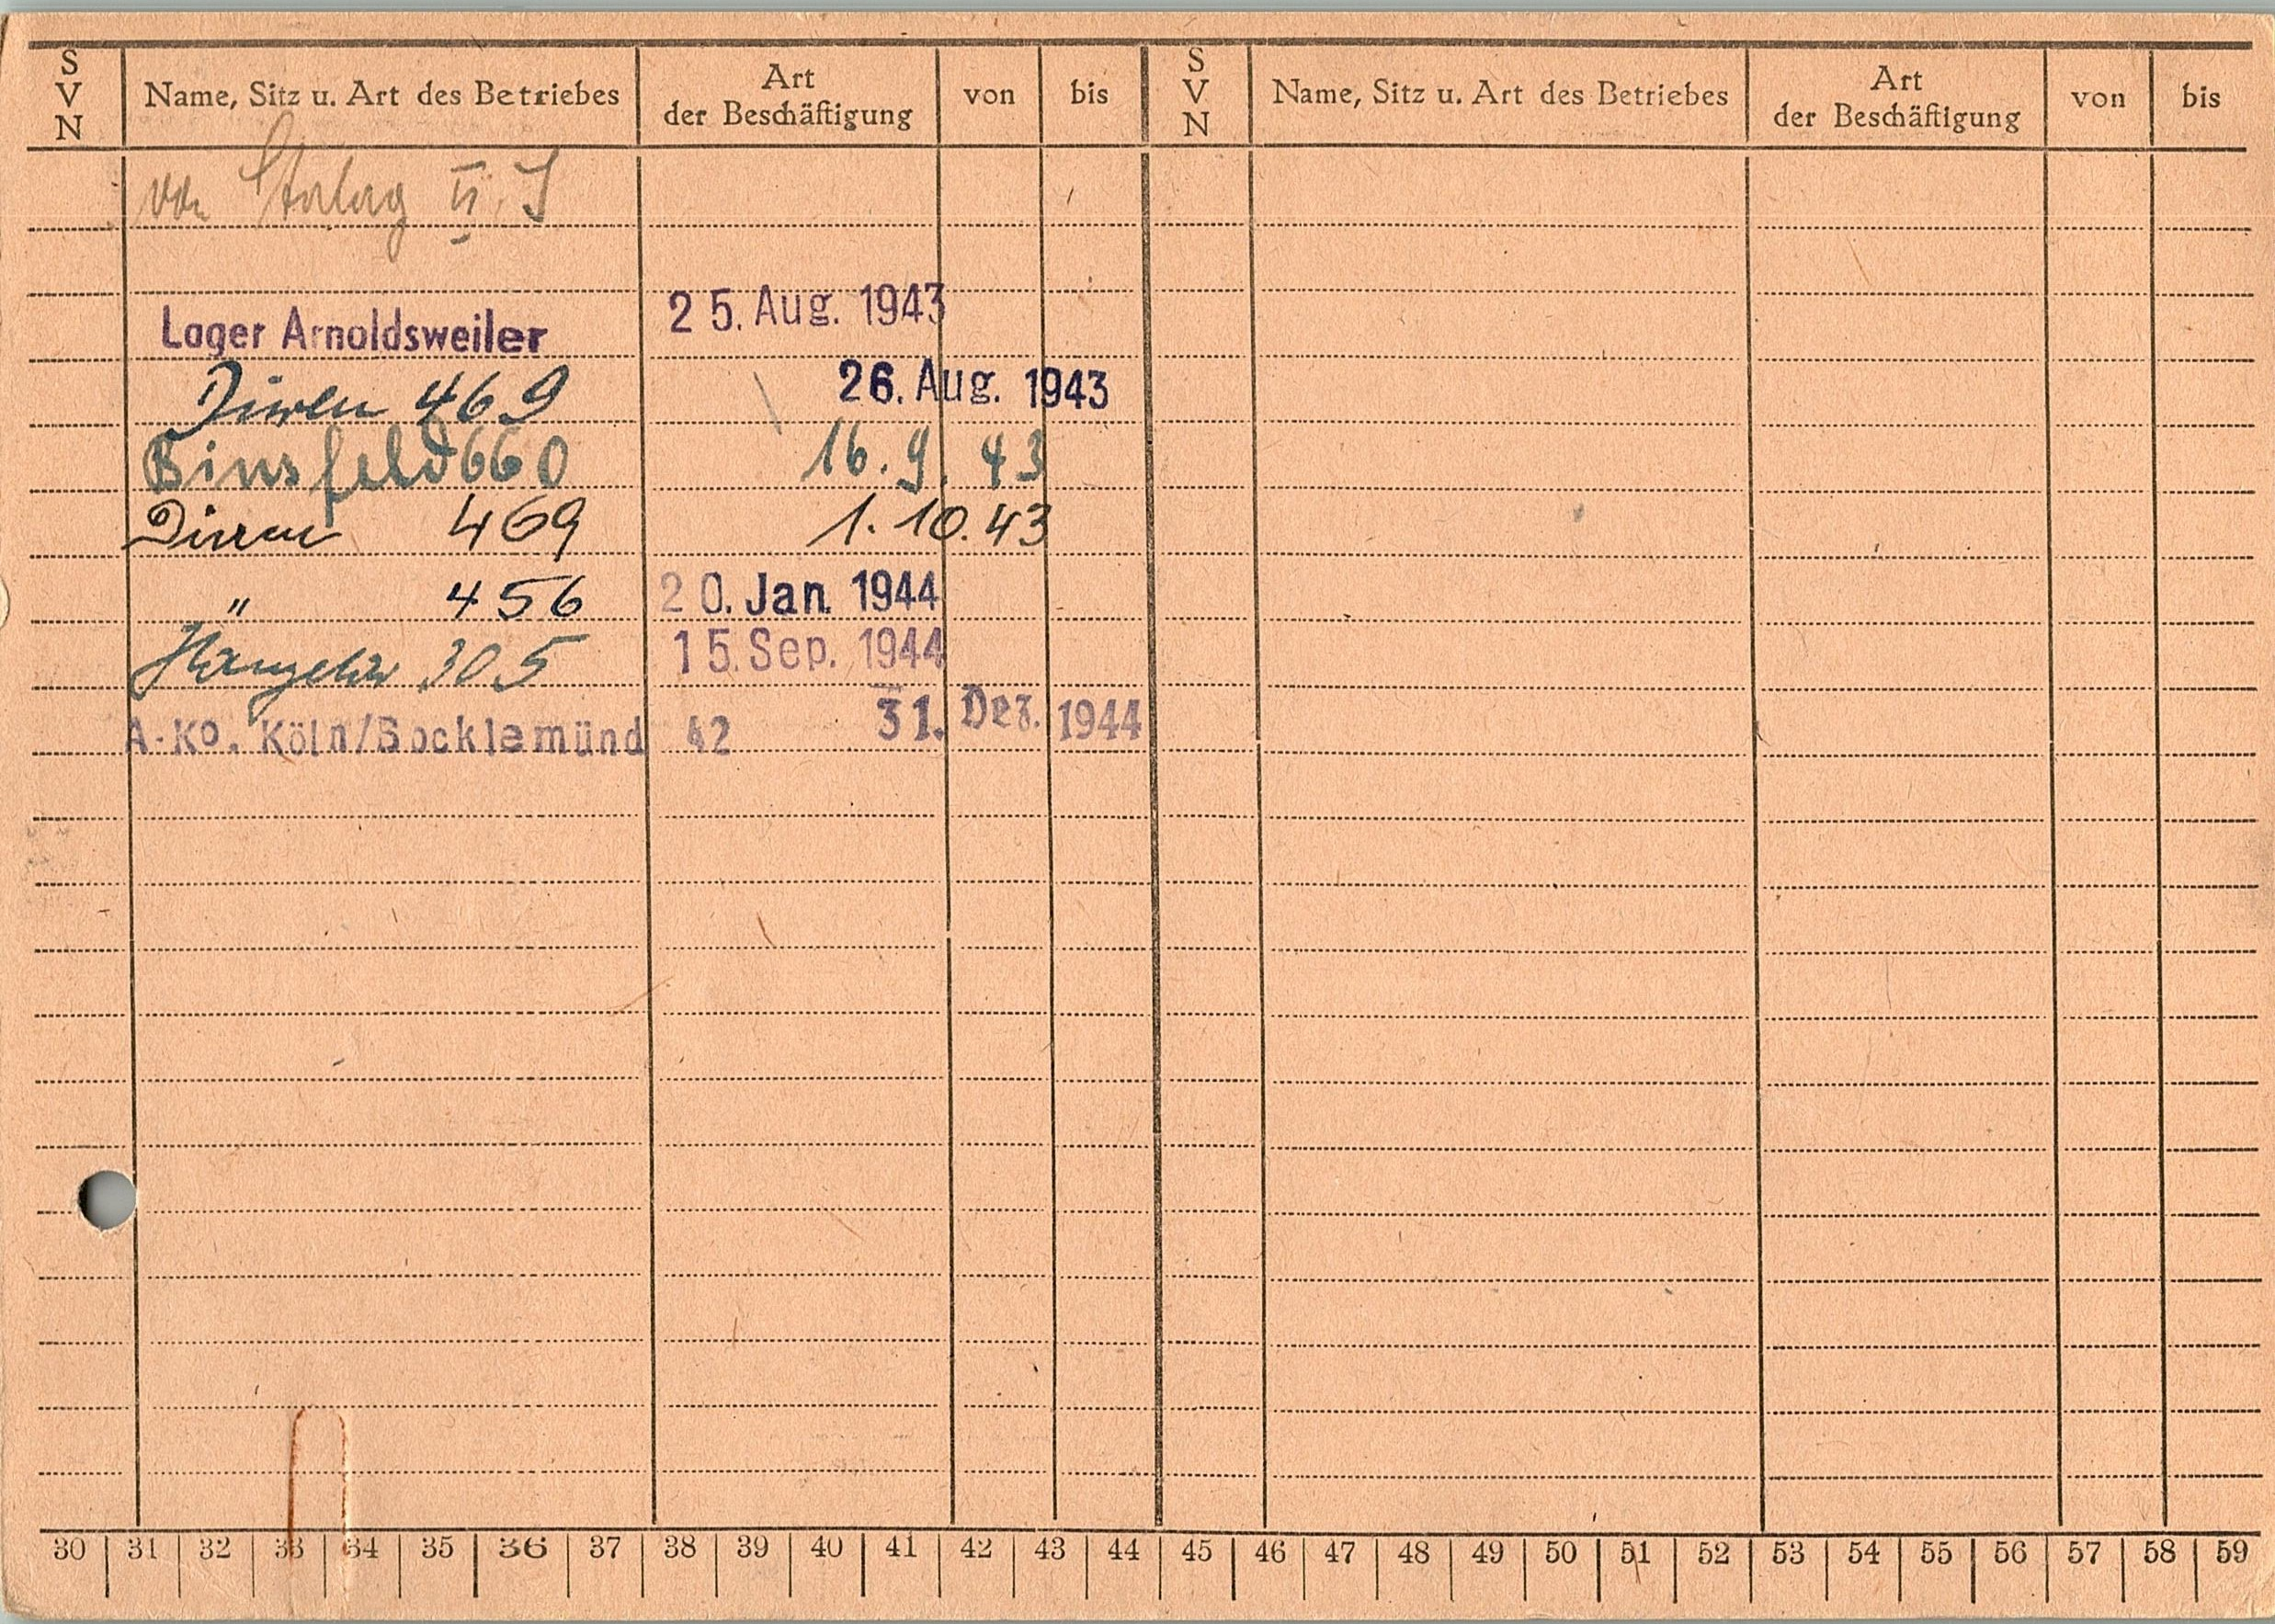 S V N Name, Sitz u. Art des Betriebes Art der Beschäftigung von bis S V N Name, Sitz u. Art des Betriebes Art der Beschäftigung von bis
von Stalag
Lager Arnoldsweiler 25. Aug. 1943
Düren 469 26. Aug. 1943
Binsfeld 660 16.9.43
Düren 469 1.10.43
" 456 20. Jan. 1944
Hangelar 305 15. Sep. 1944
A-Ko. Köln/Bocklemünd 42 31. Dez. 1944
30 31 32 33 34 35 36 37 38 39 40 41 42 43 44 45 46 47 48 49 50 51 52 53 54 55 56 57 58 59